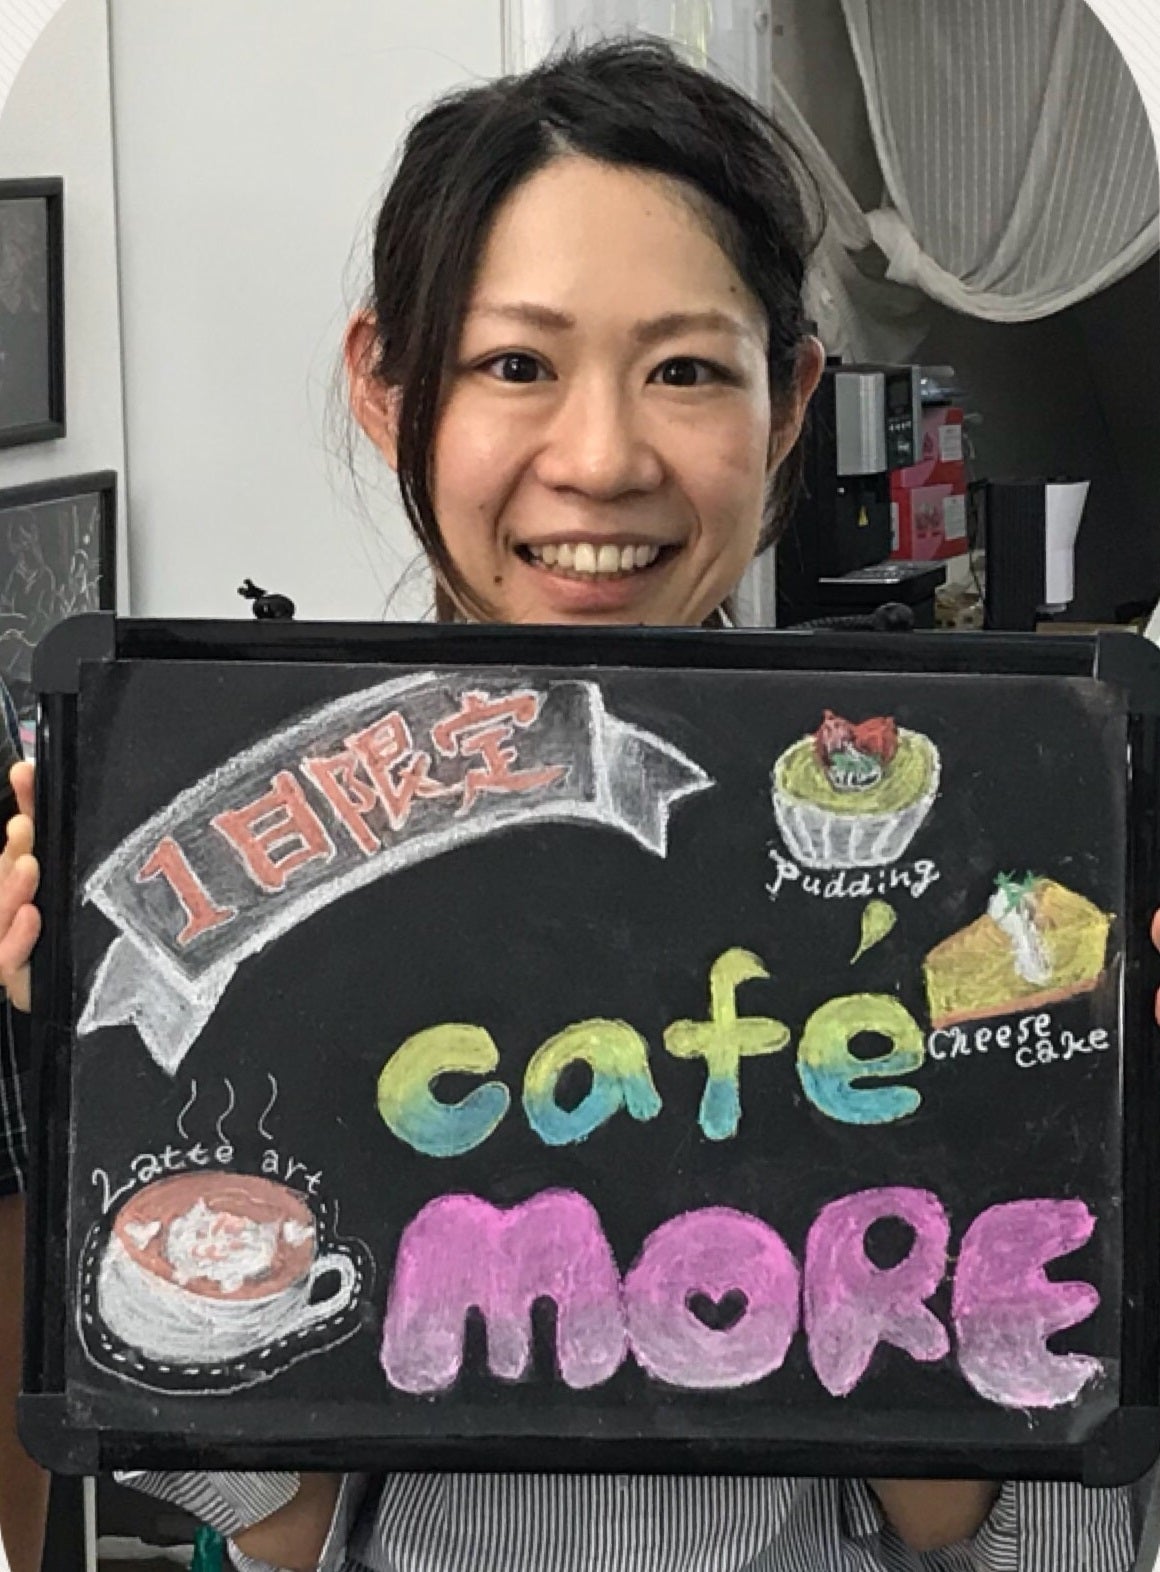 1日限定
pudding
café
Cheese
cake
Latte art
MORE